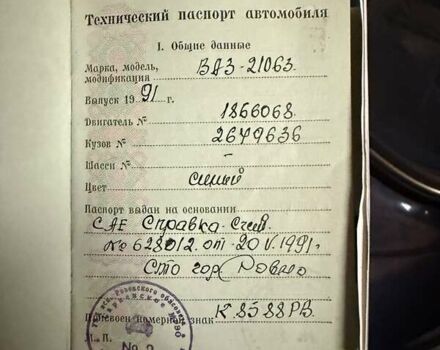 Технический паспорт автомобиля
I. Общие данные
Марка, модель, ВАЗ-21063.
модификация
Выпуск 1991 г.
Двигатель № 1866068.
Кузов № 2649636
Шасси № -
Цвет синий
Паспорт выдан на основании
САЕ Справка-Счет
№ 628012 от 20 V.1991г
Сто гор Ровно
Присвоен номерной знак К 8588РВ
М. П.